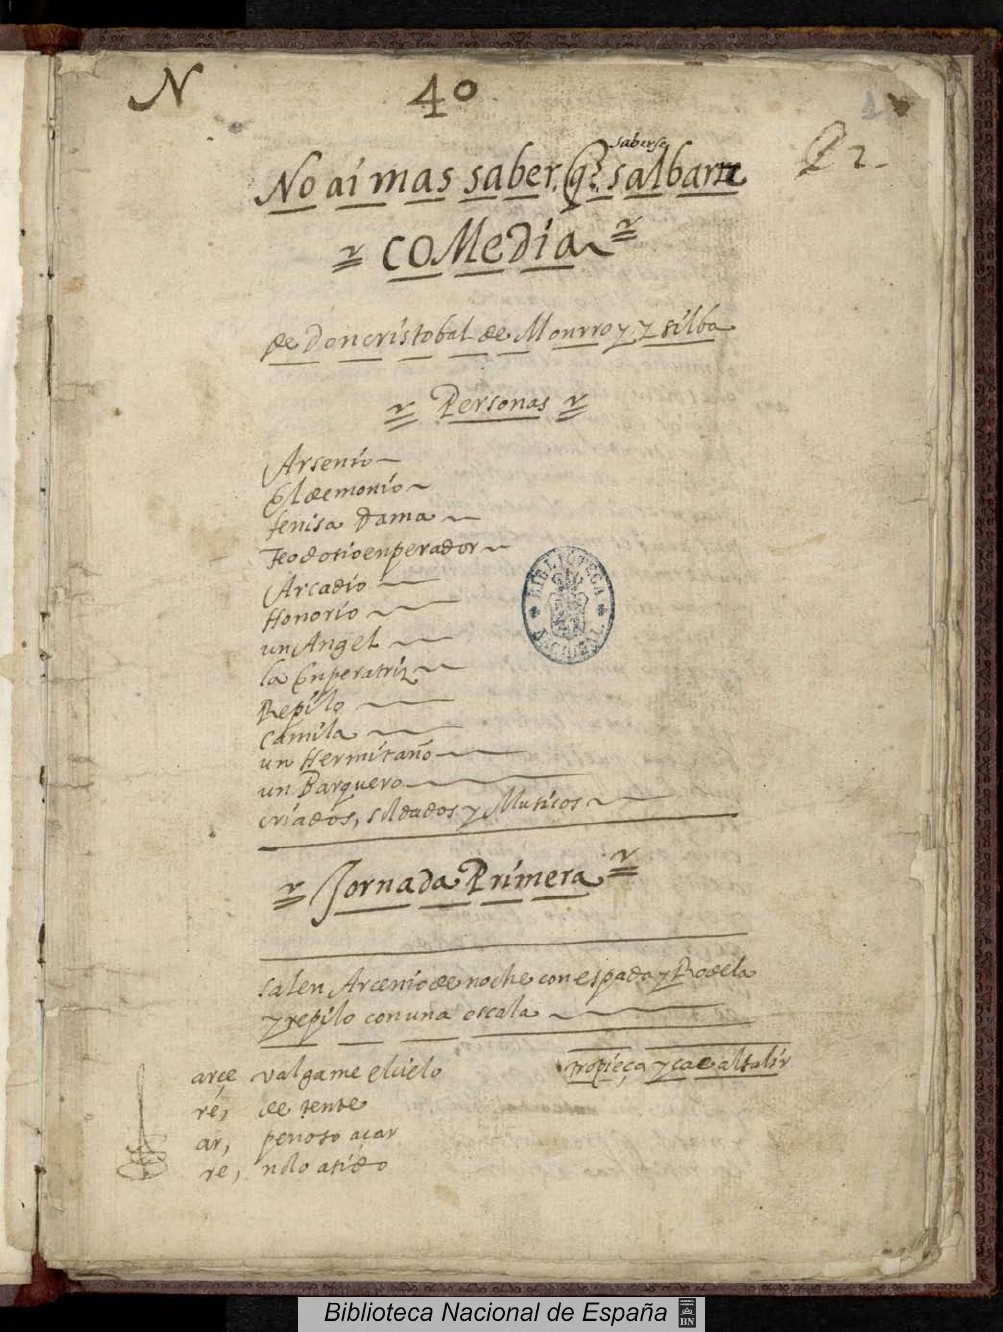 N 40
P 2
saberse
No ai mas saber, q.e salbarse
COMedia
de Don cristobal de Monrroy y silba
Personas
Arsenio
El demonio
fenisa Dama
Teodosio enperador
Arcadio
Honorio
un Angel
la Enperatriz
Repilo
Camila
un Hermitaño
un Barquero
criados, soldados y Musicos
Jornada Primera
salen Arcenio de noche con espada y Rodela
y repilo con una escala
tropieça y cae al salir
arçe valgame el cielo
re, detente
ar, penoso acar
re,
BIBLIOTECA NACIONAL
Biblioteca Nacional de España
BN